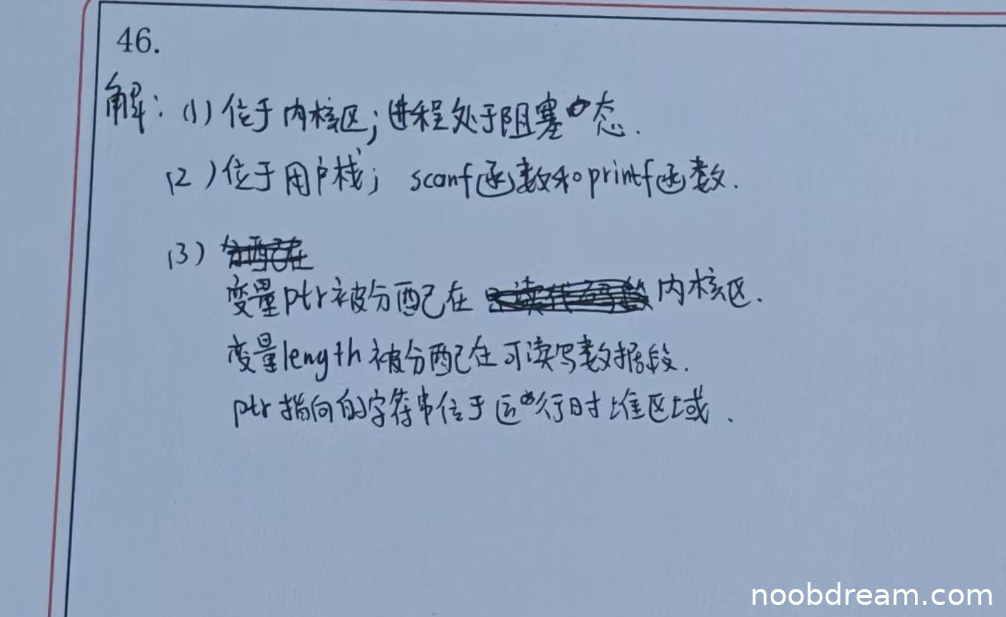 46.
解:(1)位于内核区;进程处于阻塞态.
(2)位于用户栈;scanf函数和printf函数.
(3)分配在
变量ptr被分配在 只读代码段 内核区.
变量length被分配在可读写数据段.
ptr指向的字符串位于运行时堆区域.
noobdream.com